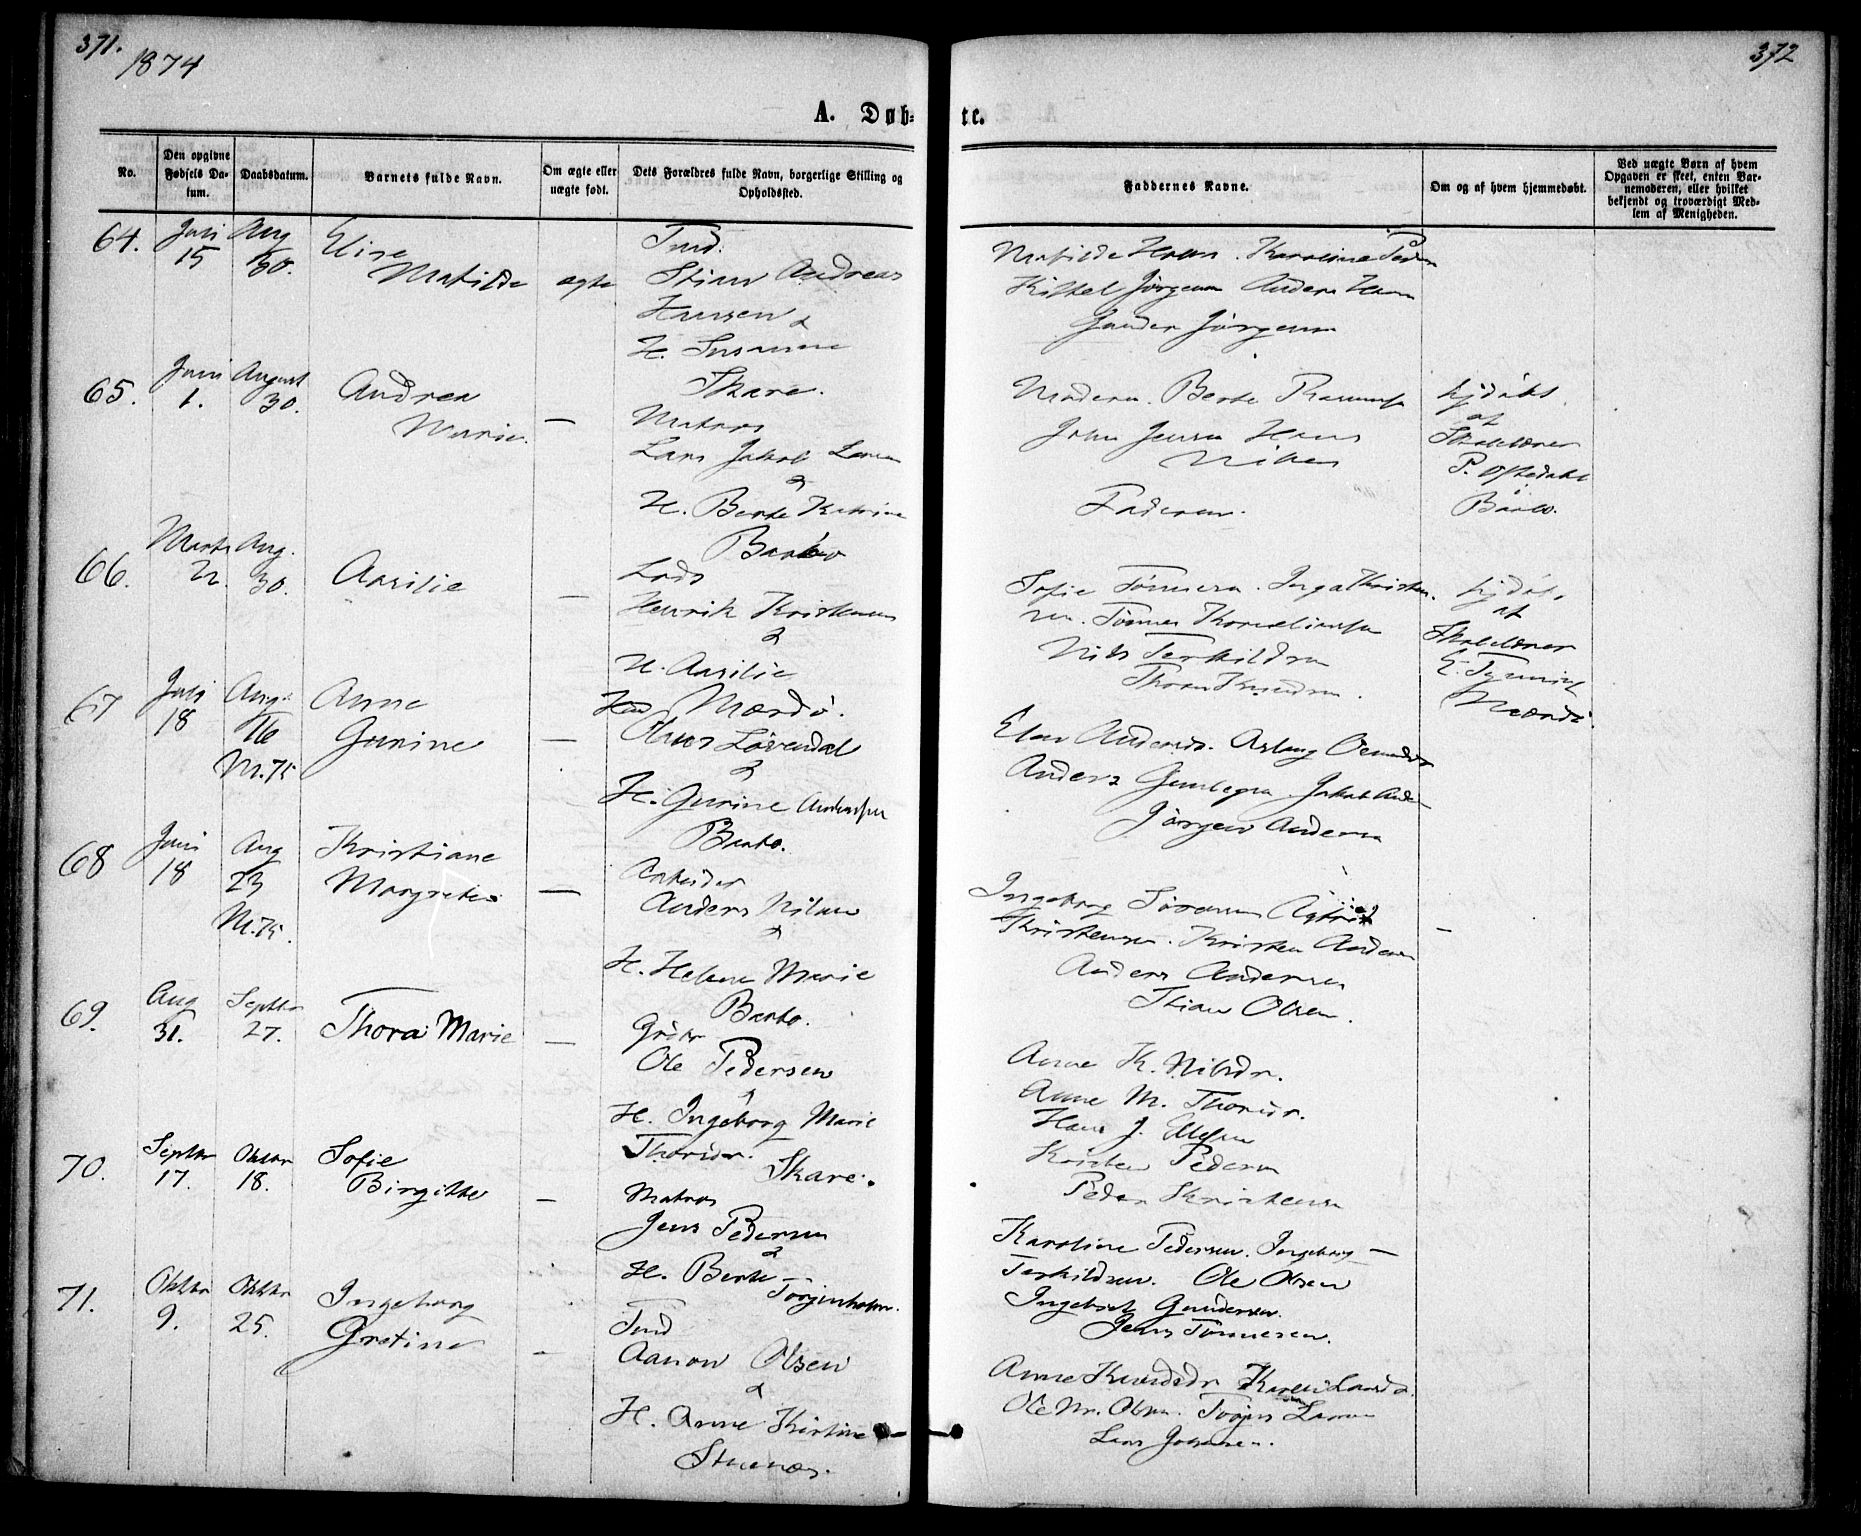 371.
1874
A. Døb-
No.
Den opgivne Fødsels Datum.
Daabsdatum.
Barnets fulde Navn.
Om ægte eller uægte født.
Dets Forældres fulde Navn, borgerlige Stilling og Opholdssted.
64.
Juli
15
Aug
30.
Elise
Matilde
ægte
Tmd.
Stian Andreas
Hansen &
H. Susanne
Skare.
65.
Juni
1.
August
30.
Andrea
Marie.
—
Matros
Lars Jakob Larsen
&
H. Berte Katrine
Barbo
66.
Marts
22.
Aug.
30.
Aasilie
—
Lods
Henrik Kristensen
&
H. Aasilie
Mærdø.
67
Juli
18
Aug.
16
M. 75
Anne
Gurine
—
Olaus Løvendal
&
H. Gurine Andersen
Barbo.
68
Juni
18
Aug
23
M. 75.
Kristiane
Margrete
—
Arbeider
Anders Nilsen
&
H. Helene Marie
Barbo.
69.
Aug
31.
Septbr
27.
Thora Marie
—
Ole Pedersen
&
H. Ingeborg Marie
Thorsdr.
Skare.
70.
Septbr
17.
Oktbr
18.
Sofie
Birgitte
—
Matros
Jens Pedersen
&
H. Berte
Torjusholm.
71.
Oktbr
9.
Oktbr
25.
Ingeborg
Gretine
—
Tmd
Aanon Olsen
&
H. Anne Kirstine
Stuenæs.
372
te.
Faddernes Navne.
Om og af hvem hjemmedøbt.
Ved uægte Børn af hvem
Opgaven er skeet, enten Bar-
nemoderen, eller hvilket
bekjendt og troværdigt Med-
lem af Menigheden.
Matilde Hansen. Karoline Peder
Kittel Jørgensen Anders Hansen
Jørgensen
Moderen. Berte Rasmussen
John Jensen Hans
Nilsen
Faderen.
hjdøbt.
af
Skolelærer
P. Oftedahl
Barbo.
Sofie Tønnesen. Inga Kristen-
sen. Tønnes Thorvaldsen
Nils Terkildsen
Thor Knudsen.
hjdøbt.
af
Skolelærer
Mærdø.
Andersdr. Aslaug
Anders Gundersen. Jakob Ander-
Jørgen Andersen
Ingeborg Sørensen
Kristensen. Kristen Andersen
Anders Andersen
Stian Olsen.
—
Anne K. Nilsdr.
Anne M. Thorsdr.
Hans J.
Kristen Pedersen
Peder Kristensen
Karoline Pedersen. Ingeborg —
Terkildsen. Ole Olsen
Ingebret Gundersen.
Jens Tønnesen.
Anne Knudsdr Karen Larsdr.
Ole Nr. Olsen. Torjus Larsen
Lars Johnsen.